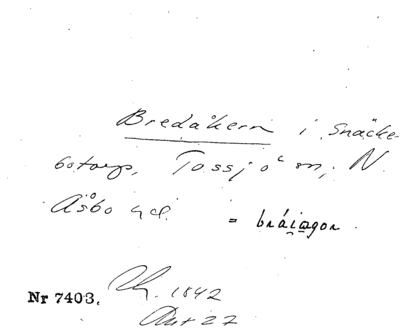 Bredåkern i Snäcke-
botorp, Tossjö sn, N.
Åsbo hd. = bráiagor
Nr 7403. 1842
27